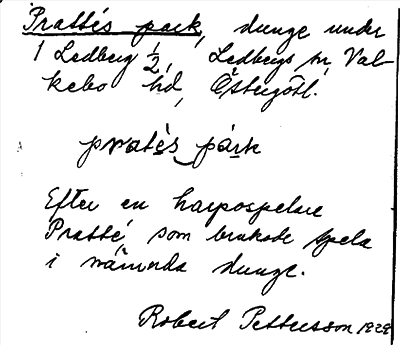 Prattés park, dunge under
1 Ledberg 1/2, Ledbergs sn, Val-
kebo hd, Östergötl.
pratès párk
Efter en harpospelare
Pratté, som brukade spela
i nämnda dunge.
Robert Pettersson 1929